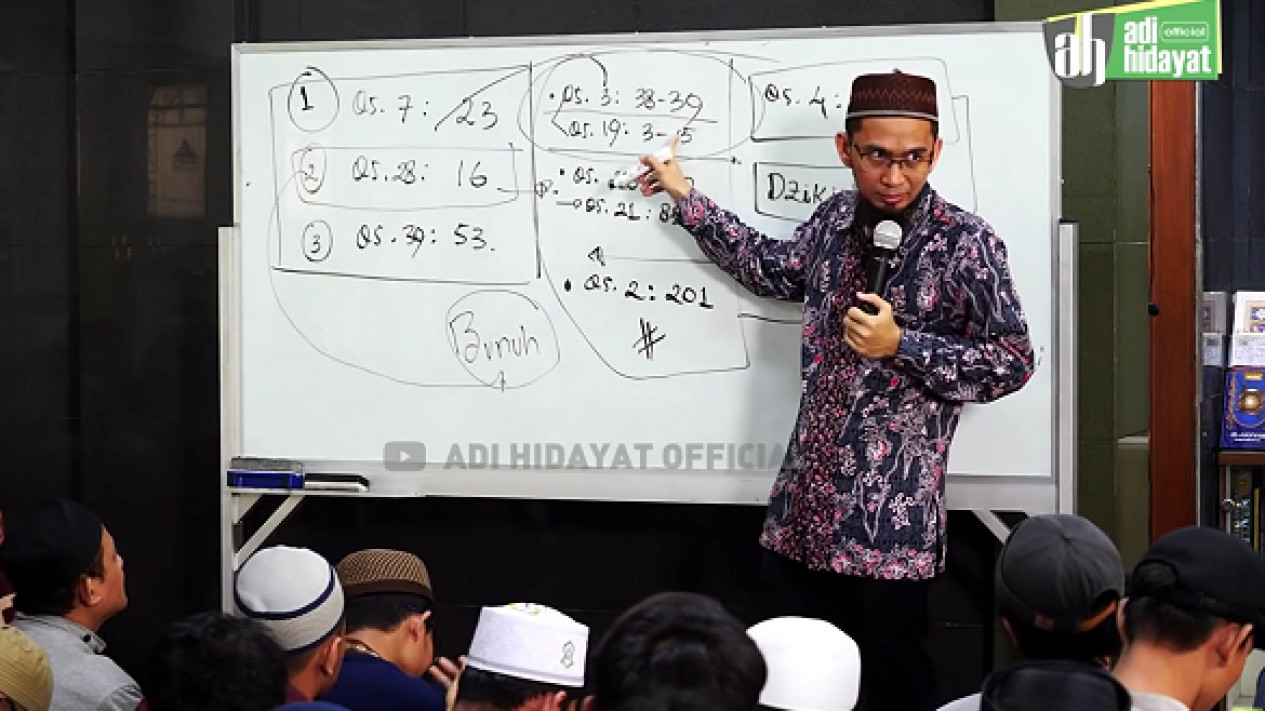 1 Qs. 7: 23
2 Qs. 28: 16
3 Qs. 39: 53.
Bunuh
• Qs. 3: 38-39
Qs. 19: 3-
• Qs.
Qs. 21:
• Qs. 2: 201
#
Qs. 4:
ah adi official hidayat
ADI HIDAYAT OFFICIA